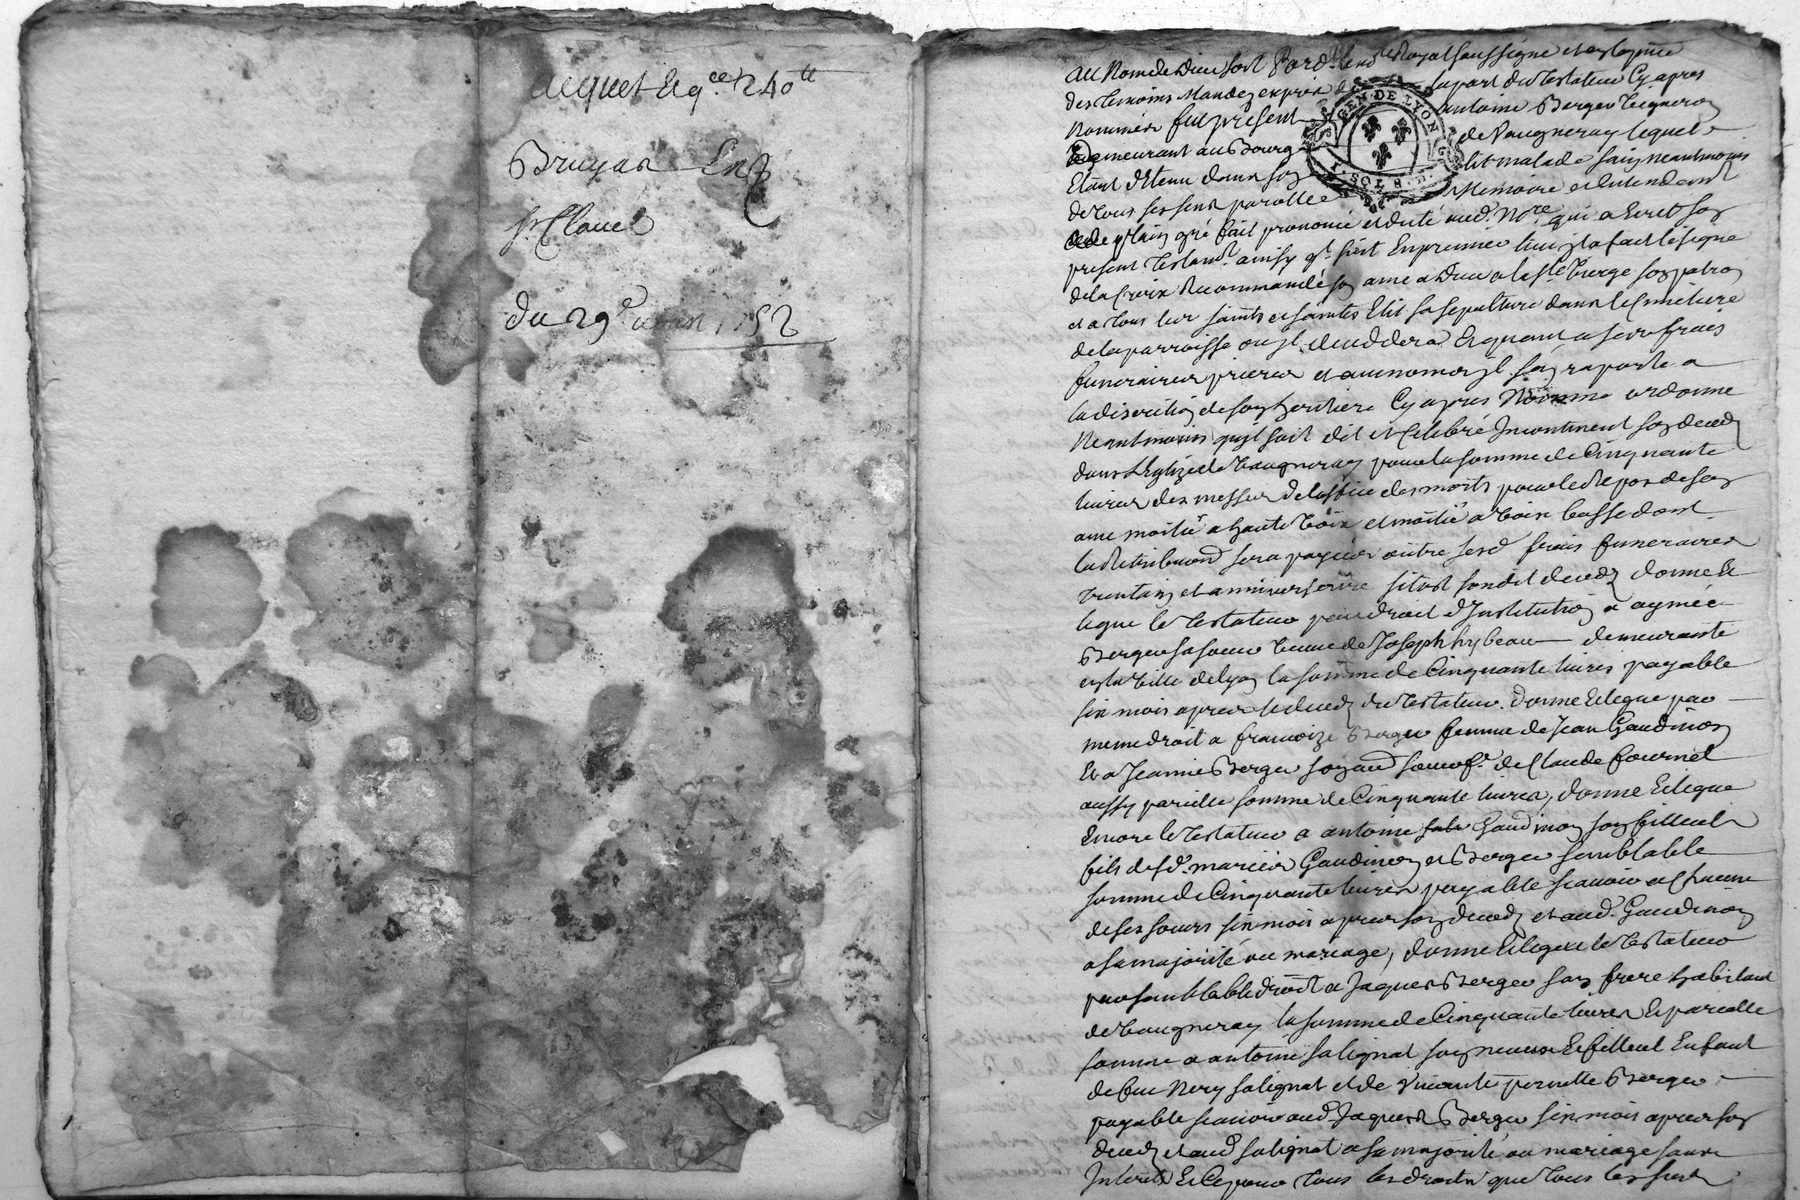 acquet Eq.ce 240 tt
Bruyas
Sr Clavel
du 29e aoust 1752
GEN. DE LYON
8 . SOLS
Au Nom de Dieu soit Pardt le nore Royal soussigné et en presence
des temoins Mandez expres de la part du testateur Cy apres
Nommés fut présent antoine Berger Vigneron
demeurant au Bourg de Vaugneray lequel
Etant detenu dans son lit malade sain neantmoins
de tous ses sens parolle Memoire et entendemt
de plain gré fait prononcé et dicté aud. Nore qui a Ecrit son
present testamt ainsy qt suit En premier lieu jl a fait le signe
de la Croix Recommandé son ame a Dieu a la ste Vierge son patron
et a tous les saints et saintes Elit sa sepulture dans le Cimetiere
de la parroisse ou jl deceddera Et quant a ses frais
funeraires prieres et aumones jl s'en raporte a
la discretion de son heritiere Cy apres Nommée ordonne
Neantmoins qu'jl soit dit et Celebré Incontinent son deced
dans L'Eglize de Vaugneray pour la somme de Cinquante
livres des messes de l'office des morts pour le Repos de son
ame moitié a haute Voix et moitié a Voix basse dont
la Retribuon sera payée outre sesd frais funeraires
trentain et anniversaire sitost sondit deced donne Et
legue le testateur pour droit d'Institution a aymée
Berger sa soeur Veuve de Joseph hybeau demeurante
en la Ville de Lyon la somme de Cinquante livres payable
six mois apres le deced du testateur. Donne Et legue par
meme droit a francoize Berger femme de Jean Gaudinon
Et a Jeanne Berger son aud soeur fe de Claude fournel
aussy pareille somme de Cinquante livres, donne Et legue
Encore le testateur a antoine Gaudinon son filleul
fils desd. mariés Gaudinon et Berger semblable
somme de Cinquante livres payable scavoir a Chacune
de ses soeurs six mois apres son deced et aud. Gaudinon
a sa majorité ou mariage, donne Et legue le testateur
par semblable droit a Jaques Berger son frere habitant
de Vaugneray la somme de Cinquante livres Et pareille
somme a antoine salignat son neveu Et filleul Enfant
de feu Nery salignat et de Vivante pernette Berger
payable scavoir aud Jaques Berger six mois apres son
deced et aud salignat a sa majorité ou mariage sans
Interets Et Ce pour tous les droits que tous les sus